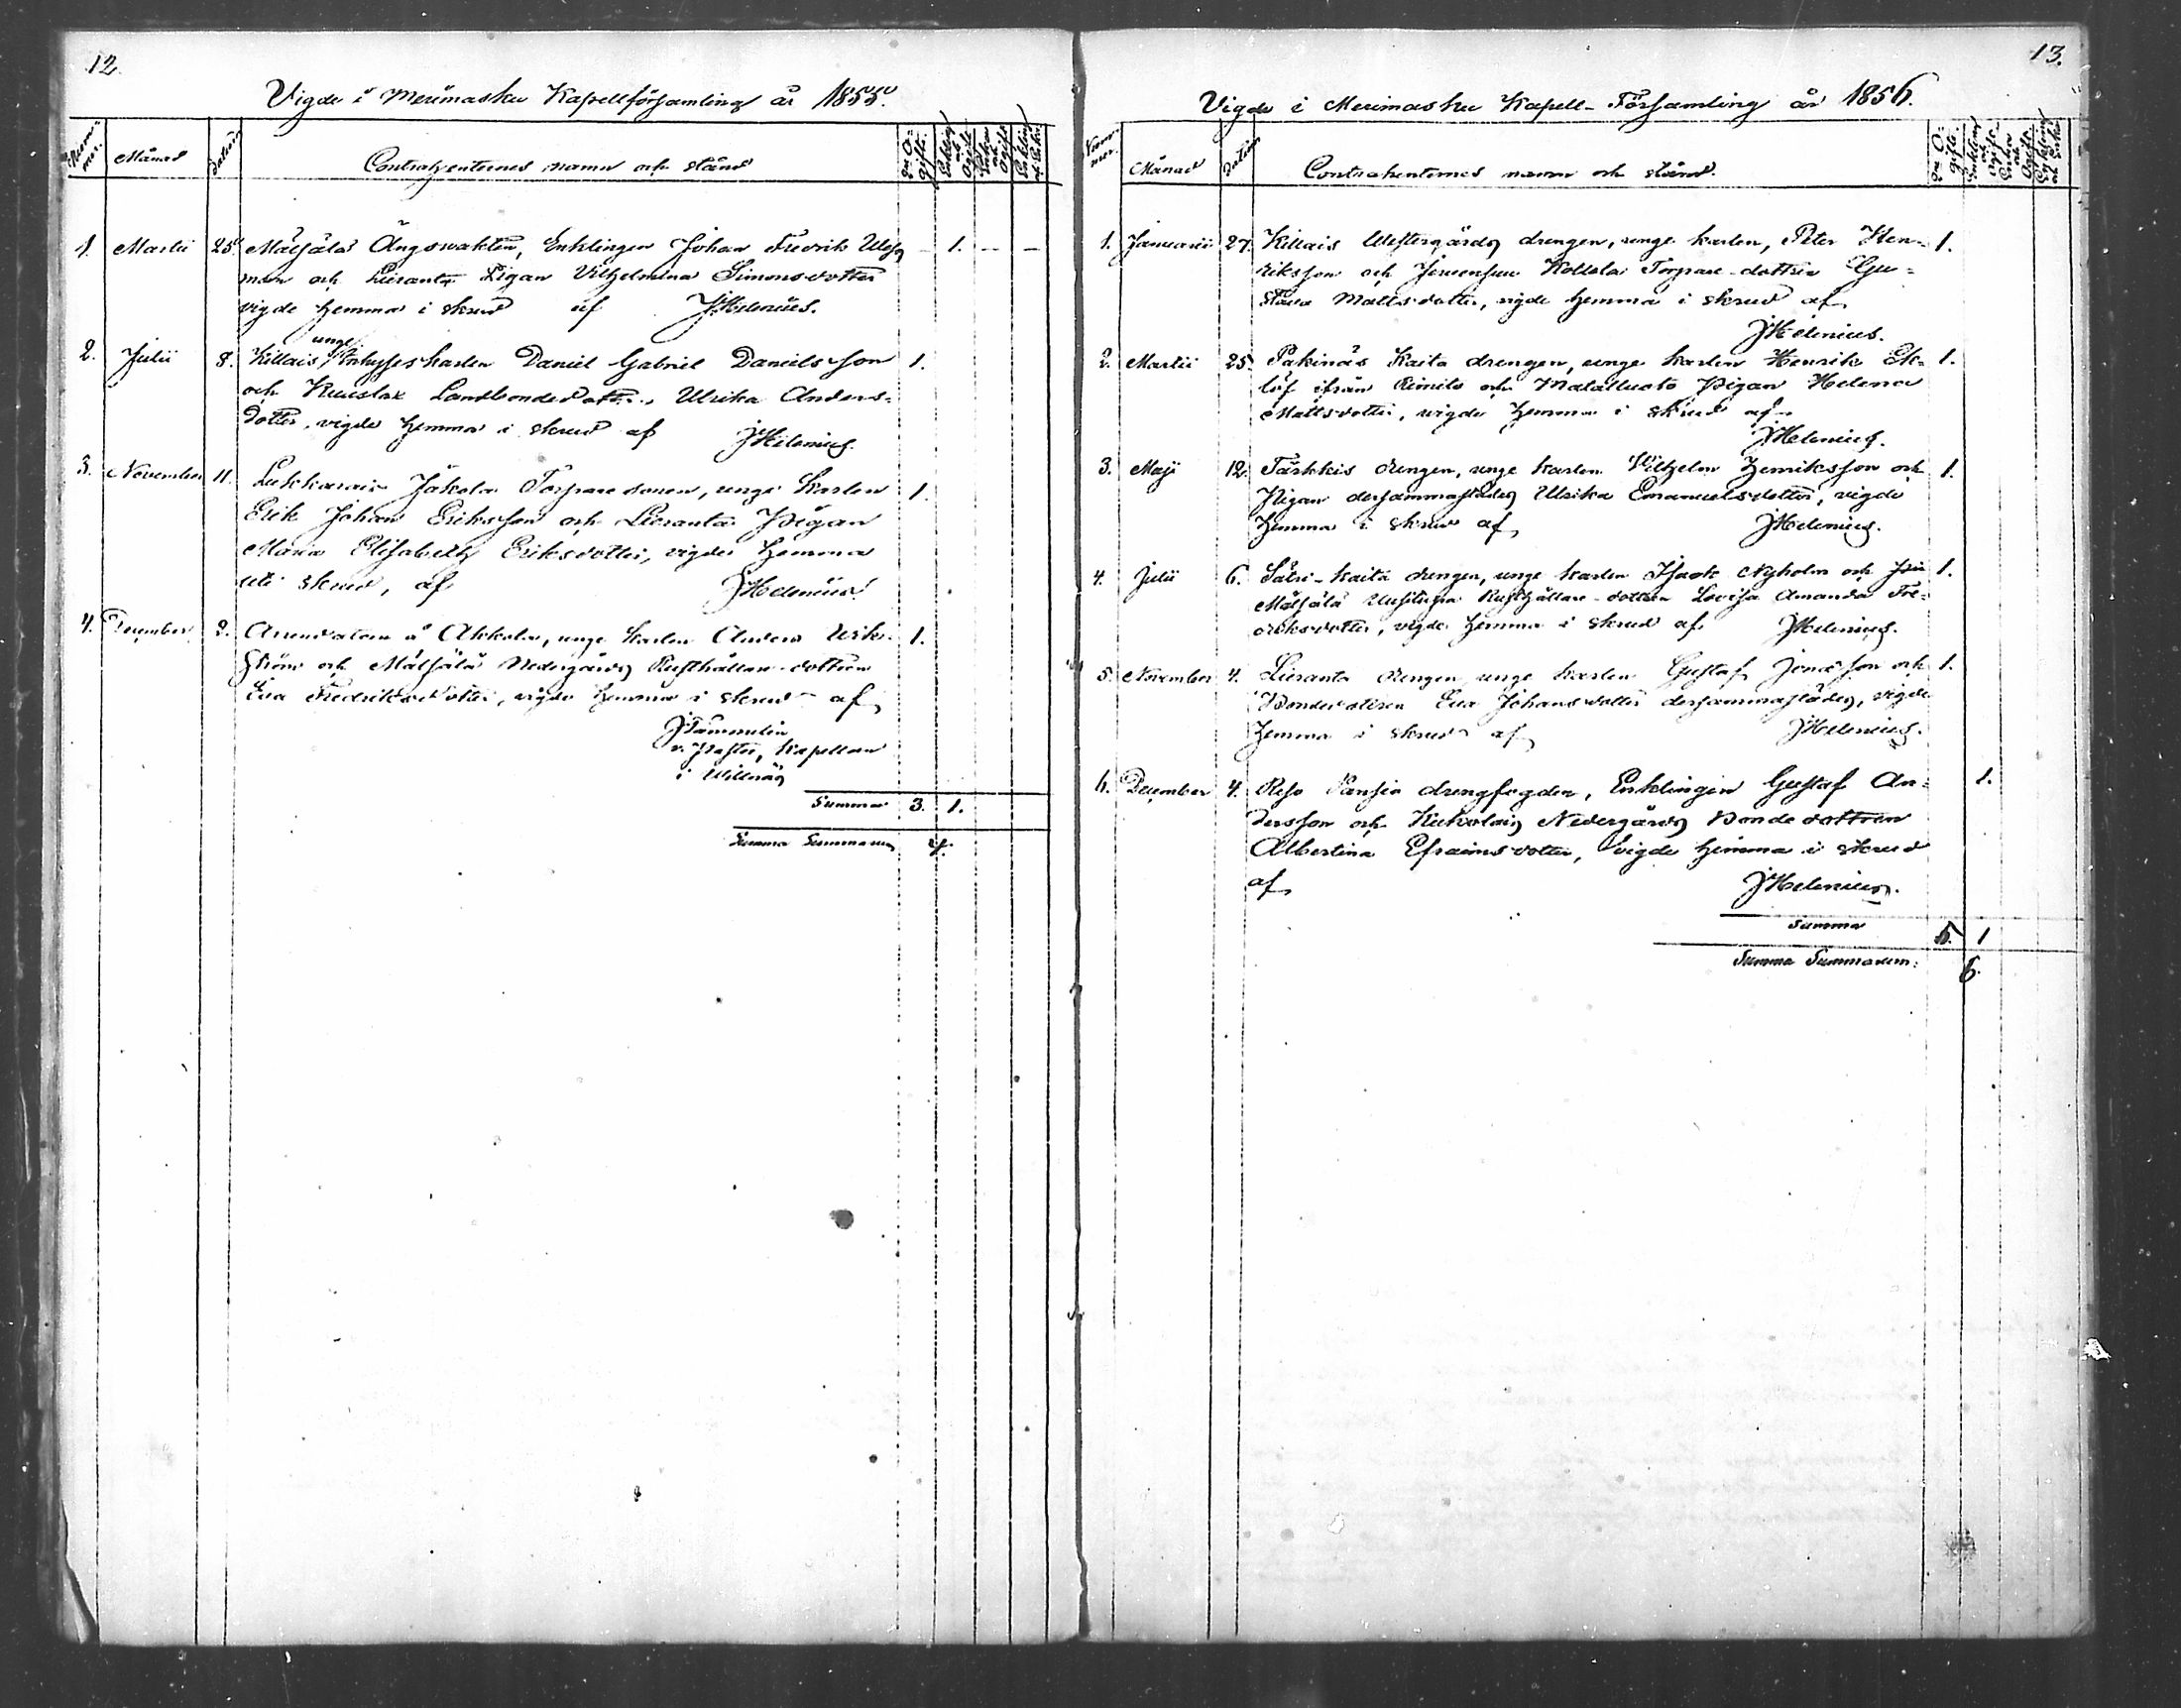 12.
Vigde i Merimasku Kapellförsamling år 1855.
Nummer. Månad Datum Contrahenternes namn och stånd
1. Martii 25. Mälsälä Ängswakten, Enklingen Johan Fredrik - 1. - -
man och Lieranta Pigan Vilhelmina Simonsdotter
vigde hemma i skrud af JHelenius.
unge
2. Julii 8. Killais Inhyses karlen Daniel Gabriel Danielsson 1.
och Landbondedottr. Ulrika Anders-
dotter, vigde hemma i skrud af JHelenius.
3. November 11. Lukkarais Jakola Torparesonen, unge karlen 1.
Erik Johan Eriksson och Lieranta Pigan
Maria Elisabeth Eriksdotter, vigde hemma
uti skrud, af JHelenius.
4. December 2. Arendatorn å Akkola, unge karlen Anders Wik- 1.
ström och Mälsälä Nedergårds Rusthållare-dottren
Eva Fredriksdotter, vigde hemma i skrud af
JTammelin
v. Pastor, Kapellan
i Willnäs
Summa 3. 1.
Summa Summarum 4.
13.
Vigde i Merimasku Kapell-Församling år 1856.
Nummer. Månad Datum Contrahenternes namn och stånd.
1. Januarii 27. Killais Westergårds drengen, unge karlen, Peter Hen- 1.
riksson och Kollola Torpare-dottren Gu-
stava Mattsdotter, vigde hemma i skrud af
JHelenius.
2. Martii 25. Pakinais Kaita drengen, unge karlen Henrik Ek- 1.
löf ifrån Rimito och Matalluoto Pigan Helena
Mattsdotter, vigde hemma i skrud af
JHelenius.
3. Maji 12. Tärkkis drengen, unge karlen Vilhelm Henriksson och 1.
Pigan dersammastädes Ulrika Emanuelsdotter, vigde
hemma i skrud af JHelenius.
4. Julii 6. Kaita drengen, unge karlen Isaak Nyholm och 1.
Mälsälä Uusitupa Rusthållare-dottren Lovisa Amanda Fre-
driksdotter, vigde hemma i skrud af JHelenius.
5. November 4. Lieranta drengen unge karlen Gustaf Jonasson och 1.
Bondedottren Eva Johansdotter dersammastädes, vigde
hemma i skrud af JHelenius.
6. December 4. drengfogden, Enklingen Gustaf An- 1.
dersson och Kukolais Nedergårds Bondedottren
Albertina Efraimsdotter, vigde hemma i skrud
af JHelenius.
Summa 5. 1
Summa Summarum: 6.